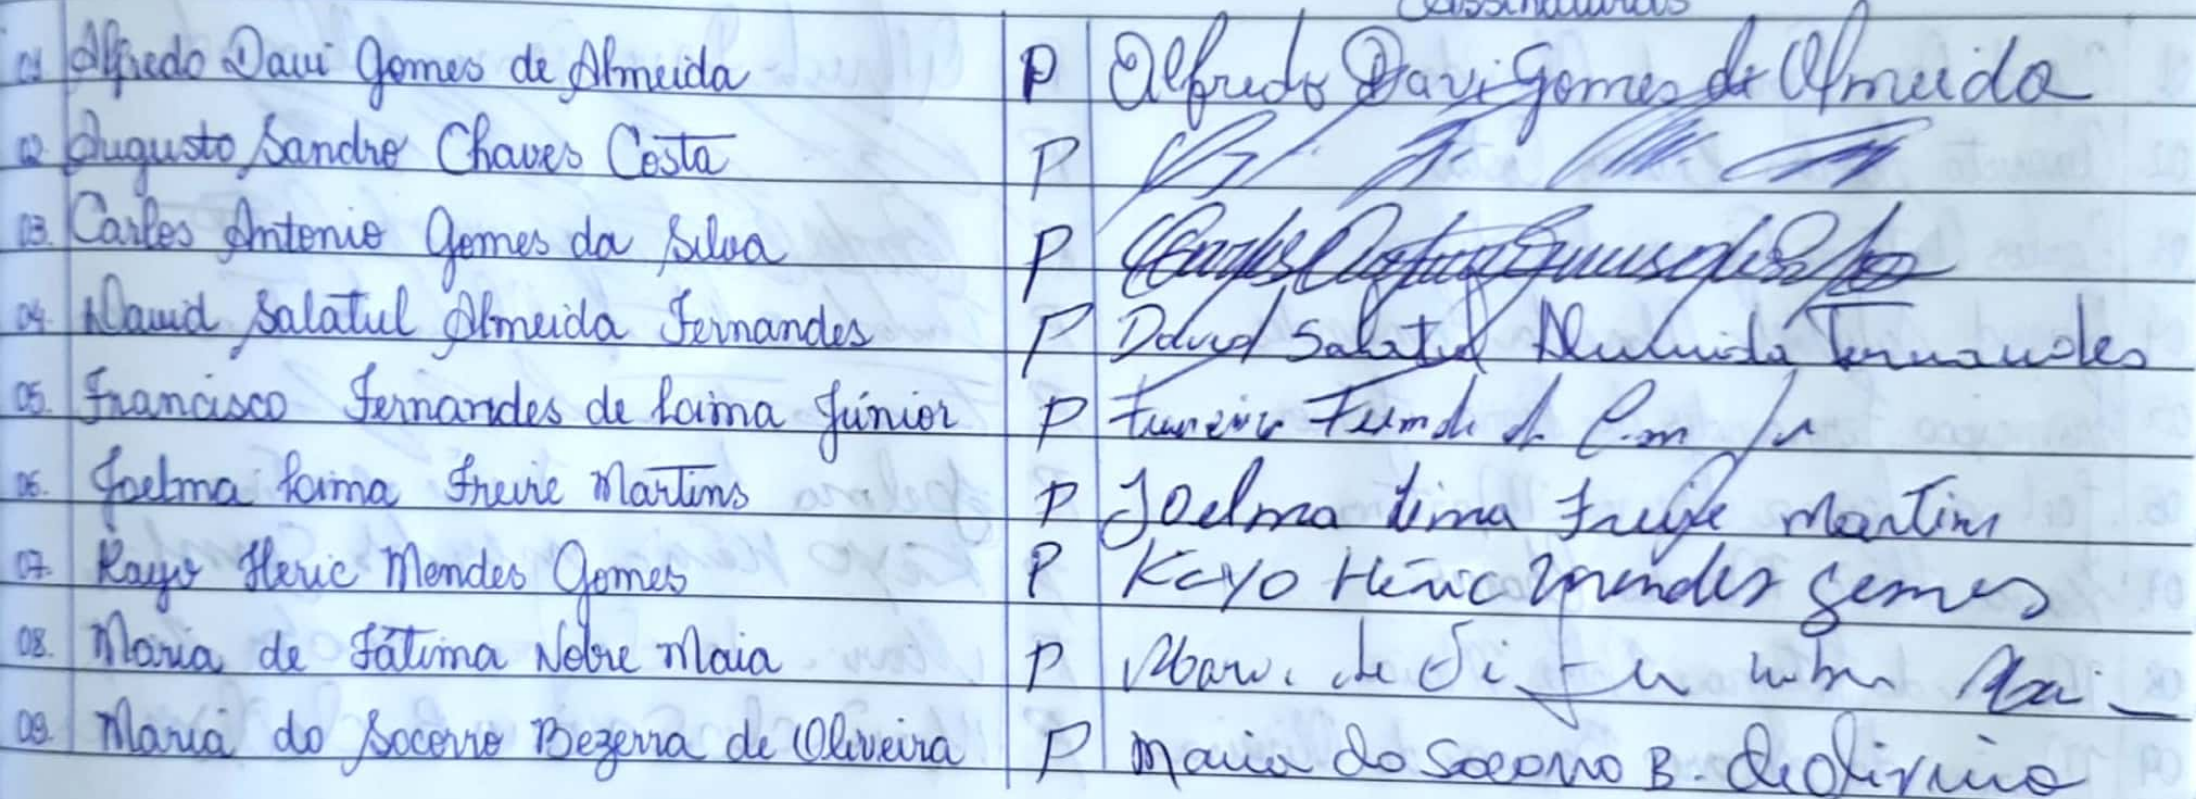 Assinaturas
01 Alfredo Davi Gomes de Almeida P Alfredo Davi Gomes de Almeida
02 Augusto Sandro Chaves Costa P
03. Carlos Antonio Gomes da Silva P
04. David Salatul Almeida Fernandes P David Salatul Almeida Fernandes
05. Francisco Fernandes de Laima Júnior P
06. Joelma Laima Freire Martins P Joelma Lima Freire Martins
07. Kayo Heric Mendes Gomes P Kayo Heric Mendes Gomes
08. Maria de Fátima Nobre Maia P
09. Maria do Socorro Bezerra de Oliveira P Maria do Socorro B. de Oliveira